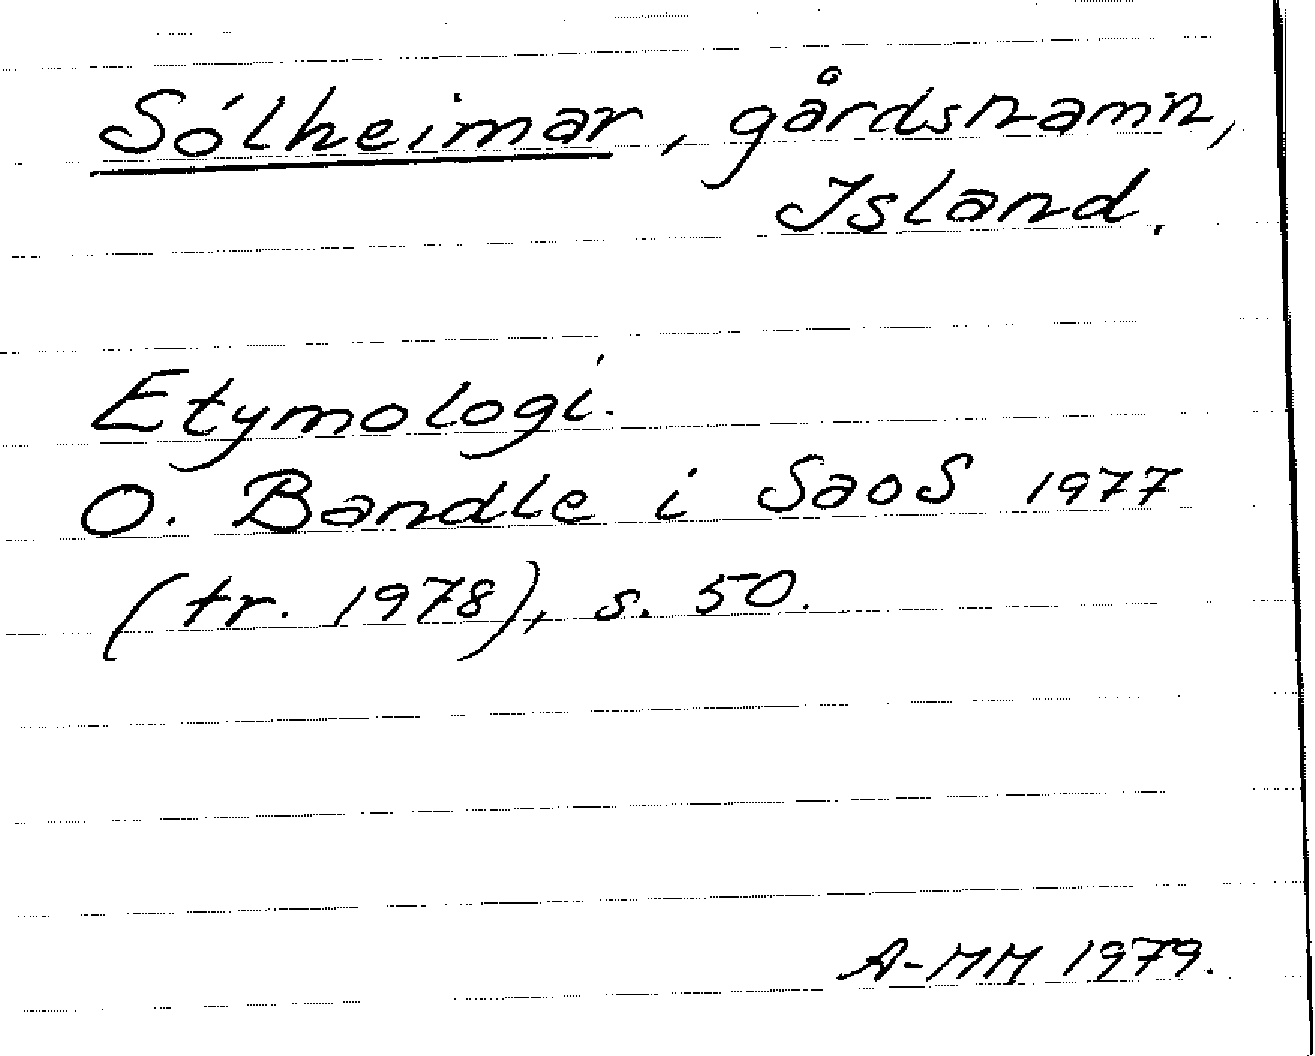 Sólheimar, gårdsnamn,
Island.
Etymologi.
O. Bandle i SaoS 1977
(tr. 1978), s. 50.
A-MM 1979.